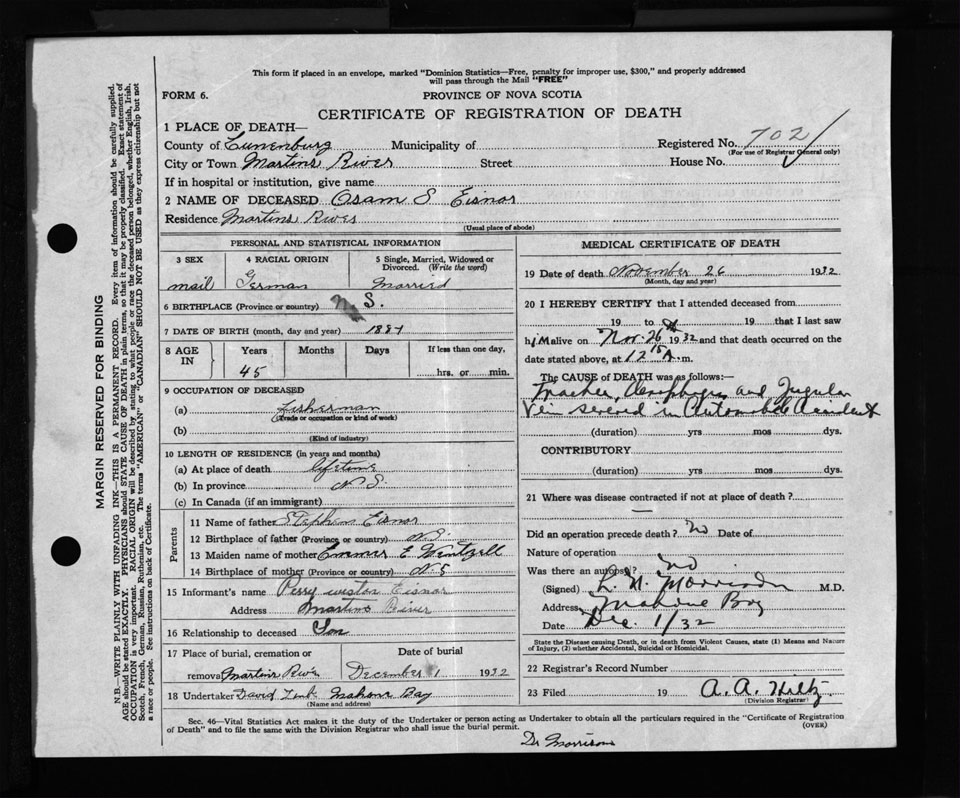 This form if placed in an envelope, marked "Dominion Statistics—Free, penalty for improper use, $300," and properly addressed
will pass through the Mail "FREE"
FORM 6.
PROVINCE OF NOVA SCOTIA
CERTIFICATE OF REGISTRATION OF DEATH
1 PLACE OF DEATH—
County of Lunenburg Municipality of Registered No. 702
(For use of Registrar General only)
City or Town Martins River Street House No.
If in hospital or institution, give name
2 NAME OF DECEASED Osam S Eisnor
Residence Martins River
(Usual place of abode)
PERSONAL AND STATISTICAL INFORMATION
3 SEX 4 RACIAL ORIGIN 5 Single, Married, Widowed or Divorced. (Write the word)
mail German Married
6 BIRTHPLACE (Province or country) N. S.
7 DATE OF BIRTH (month, day and year) 1887
8 AGE IN Years Months Days If less than one day,
45 hrs. or min.
9 OCCUPATION OF DECEASED
(a) Fisherman
(Trade or occupation or kind of work)
(b)
(Kind of industry)
10 LENGTH OF RESIDENCE (in years and months)
(a) At place of death lifetime
(b) In province N S.
(c) In Canada (if an immigrant)
Parents
11 Name of father Stephen Eisnor
12 Birthplace of father (Province or country) N.S.
13 Maiden name of mother Emmer E Wentzell
14 Birthplace of mother (Province or country) N S
15 Informant's name Perry Eisnor
Address Martins River
16 Relationship to deceased Son
17 Place of burial, cremation or removal Martins River
Date of burial
December 1 1932
18 Undertaker David Mahone Bay
(Name and address)
MEDICAL CERTIFICATE OF DEATH
19 Date of death November 26 1932
(Month, day and year)
20 I HEREBY CERTIFY that I attended deceased from
19 to 19 that I last saw
him alive on Nov. 26th 1932 and that death occurred on the
date stated above, at 12 15 A. m.
The CAUSE of DEATH was as follows:—
Trachea, Oesophagus and Jugular
Vein severed in Automobile Accident
(duration) yrs mos dys.
CONTRIBUTORY
(duration) yrs mos dys.
21 Where was disease contracted if not at place of death?
—
Did an operation precede death? No Date of
Nature of operation
Was there an autopsy? No
(Signed) L. N. Morrison M.D.
Address Mahone Bay
Date Dec. 1/32
State the Disease causing Death, or in death from Violent Causes, state (1) Means and Nature
of Injury, (2) whether Accidental, Suicidal or Homicidal.
22 Registrar's Record Number
23 Filed 19 A. A. Hiltz
(Division Registrar)
Sec. 46—Vital Statistics Act makes it the duty of the Undertaker or person acting as Undertaker to obtain all the particulars required in the "Certificate of Registration
of Death" and to file the same with the Division Registrar who shall issue the burial permit. (OVER)
Dr Morrison
MARGIN RESERVED FOR BINDING
N.B.—WRITE PLAINLY WITH UNFADING INK—THIS IS A PERMANENT RECORD. Every item of information should be carefully supplied.
AGE should be stated EXACTLY. PHYSICIANS should STATE CAUSE OF DEATH in plain terms, so that it may be properly classified. Exact statement of
OCCUPATION is very important. RACIAL ORIGIN will be described by stating to what people or race the deceased person belonged, whether English, Irish,
Scotch, French, German, Russian, Ruthenian, etc. The terms "AMERICAN" or "CANADIAN" SHOULD NOT BE USED as they express citizenship but not
a race or people. See instructions on back of Certificate.